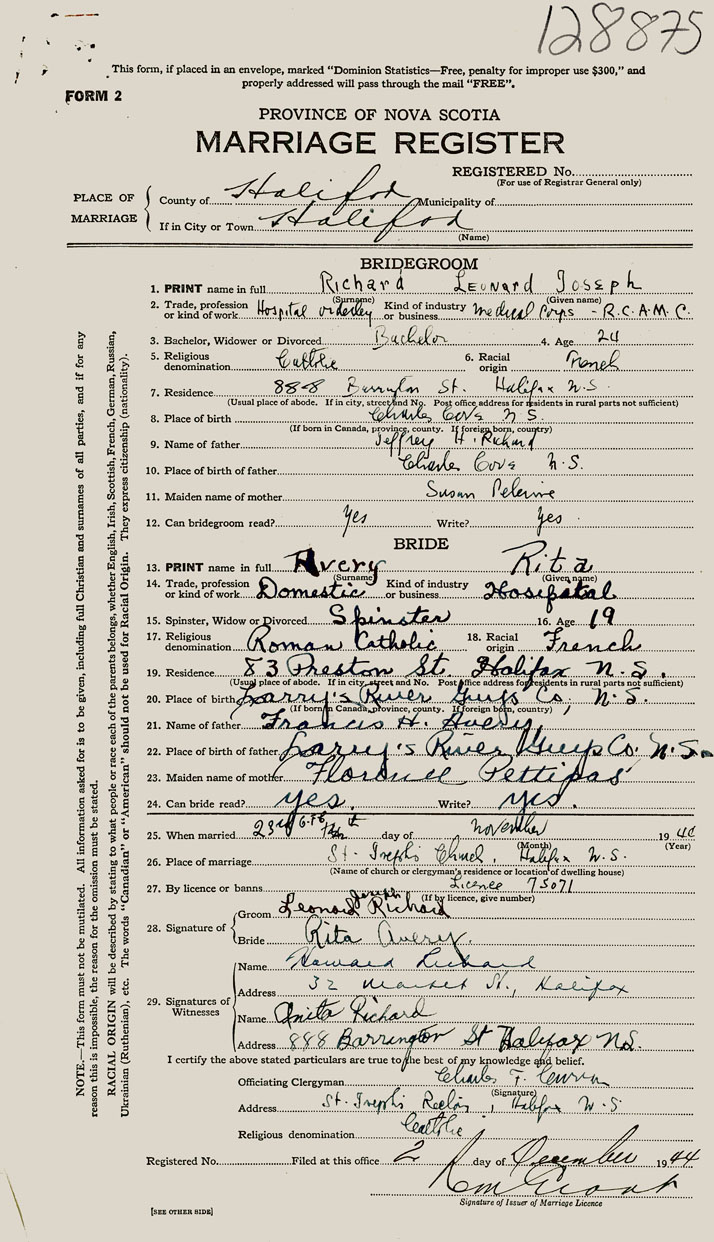 128875
This form, if placed in an envelope, marked "Dominion Statistics—Free, penalty for improper use $300," and
properly addressed will pass through the mail "FREE".
FORM 2
PROVINCE OF NOVA SCOTIA
MARRIAGE REGISTER
REGISTERED No.
(For use of Registrar General only)
PLACE OF MARRIAGE
County of Halifax Municipality of
If in City or Town Halifax
(Name)
BRIDEGROOM
1. PRINT name in full Richard Leonard Joseph
(Surname) (Given name)
2. Trade, profession or kind of work Hospital orderley Kind of industry or business Medical Corps - R.C.A.M.C.
3. Bachelor, Widower or Divorced Bachelor 4. Age 24
5. Religious denomination Catholic 6. Racial origin French
7. Residence 888 Barrington St. Halifax N.S.
(Usual place of abode. If in city, street and No. Post office address for residents in rural parts not sufficient)
8. Place of birth Charles Cove N.S.
(If born in Canada, province, county. If foreign born, country)
9. Name of father Jeffrey H. Richard
10. Place of birth of father Charles Cove N.S.
11. Maiden name of mother Susan Pelerine
12. Can bridegroom read? Yes Write? Yes
BRIDE
13. PRINT name in full Avery Rita
(Surname) (Given name)
14. Trade, profession or kind of work Domestic Kind of industry or business Hosipatal
15. Spinster, Widow or Divorced Spinster 16. Age 19
17. Religious denomination Roman Catholic 18. Racial origin French
19. Residence 83 Preston St. Halifax N.S.
(Usual place of abode. If in city, street and No. Post office address for residents in rural parts not sufficient)
20. Place of birth Larry's River Guys Co, N.S.
(If born in Canada, province, county. If foreign born, country)
21. Name of father Francis H. Avery
22. Place of birth of father Larry's River Guys Co. N.S.
23. Maiden name of mother Florence Pettipas
24. Can bride read? yes. Write? yes.
25. When married 23rd day of November 1944
(Month) (Year)
26. Place of marriage St. Joseph's Church, Halifax N.S.
(Name of church or clergyman's residence or location of dwelling house)
27. By licence or banns Licence 75071
(If by licence, give number)
28. Signature of
Groom Leonard Joseph Richard
Bride Rita Avery.
29. Signatures of Witnesses
Name Howard Richard
Address 32 Market St., Halifax
Name Anita Richard
Address 888 Barrington St Halifax N.S.
I certify the above stated particulars are true to the best of my knowledge and belief.
Officiating Clergyman Charles F. Curran
(Signature)
Address St. Joseph's Rectory, Halifax N.S
Religious denomination Catholic
Registered No. Filed at this office 2 day of December 1944
Signature of Issuer of Marriage Licence
[SEE OTHER SIDE]
NOTE.—This form must not be mutilated. All information asked for is to be given, including full Christian and surnames of all parties, and if for any
reason this is impossible, the reason for the omission must be stated.
RACIAL ORIGIN will be described by stating to what people or race each of the parents belongs, whether English, Irish, Scottish, French, German, Russian,
Ukrainian (Ruthenian), etc. The words "Canadian" or "American" should not be used for Racial Origin. They express citizenship (nationality).